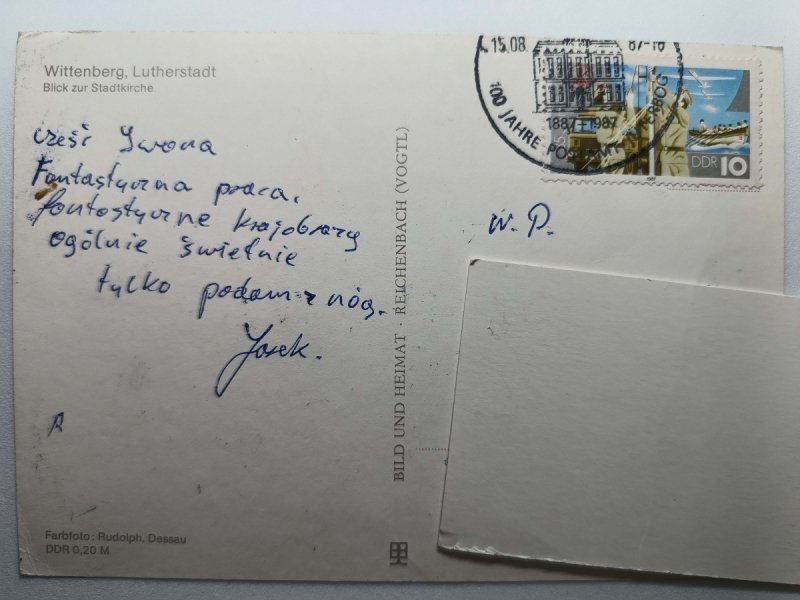 Wittenberg, Lutherstadt
Blick zur Stadtkirche
cześć Iwona
Fantastyczna praca,
fantastyczne krajobrazy
ogólnie świetnie
tylko padam z nóg.
Jacek.
R
Farbfoto: Rudolph, Dessau
DDR 0,20 M
BILD UND HEIMAT · REICHENBACH (VOGTL)
15.08. 87-16
1887-1987
100 JAHRE POSTAMT
DDR 10
W. P.